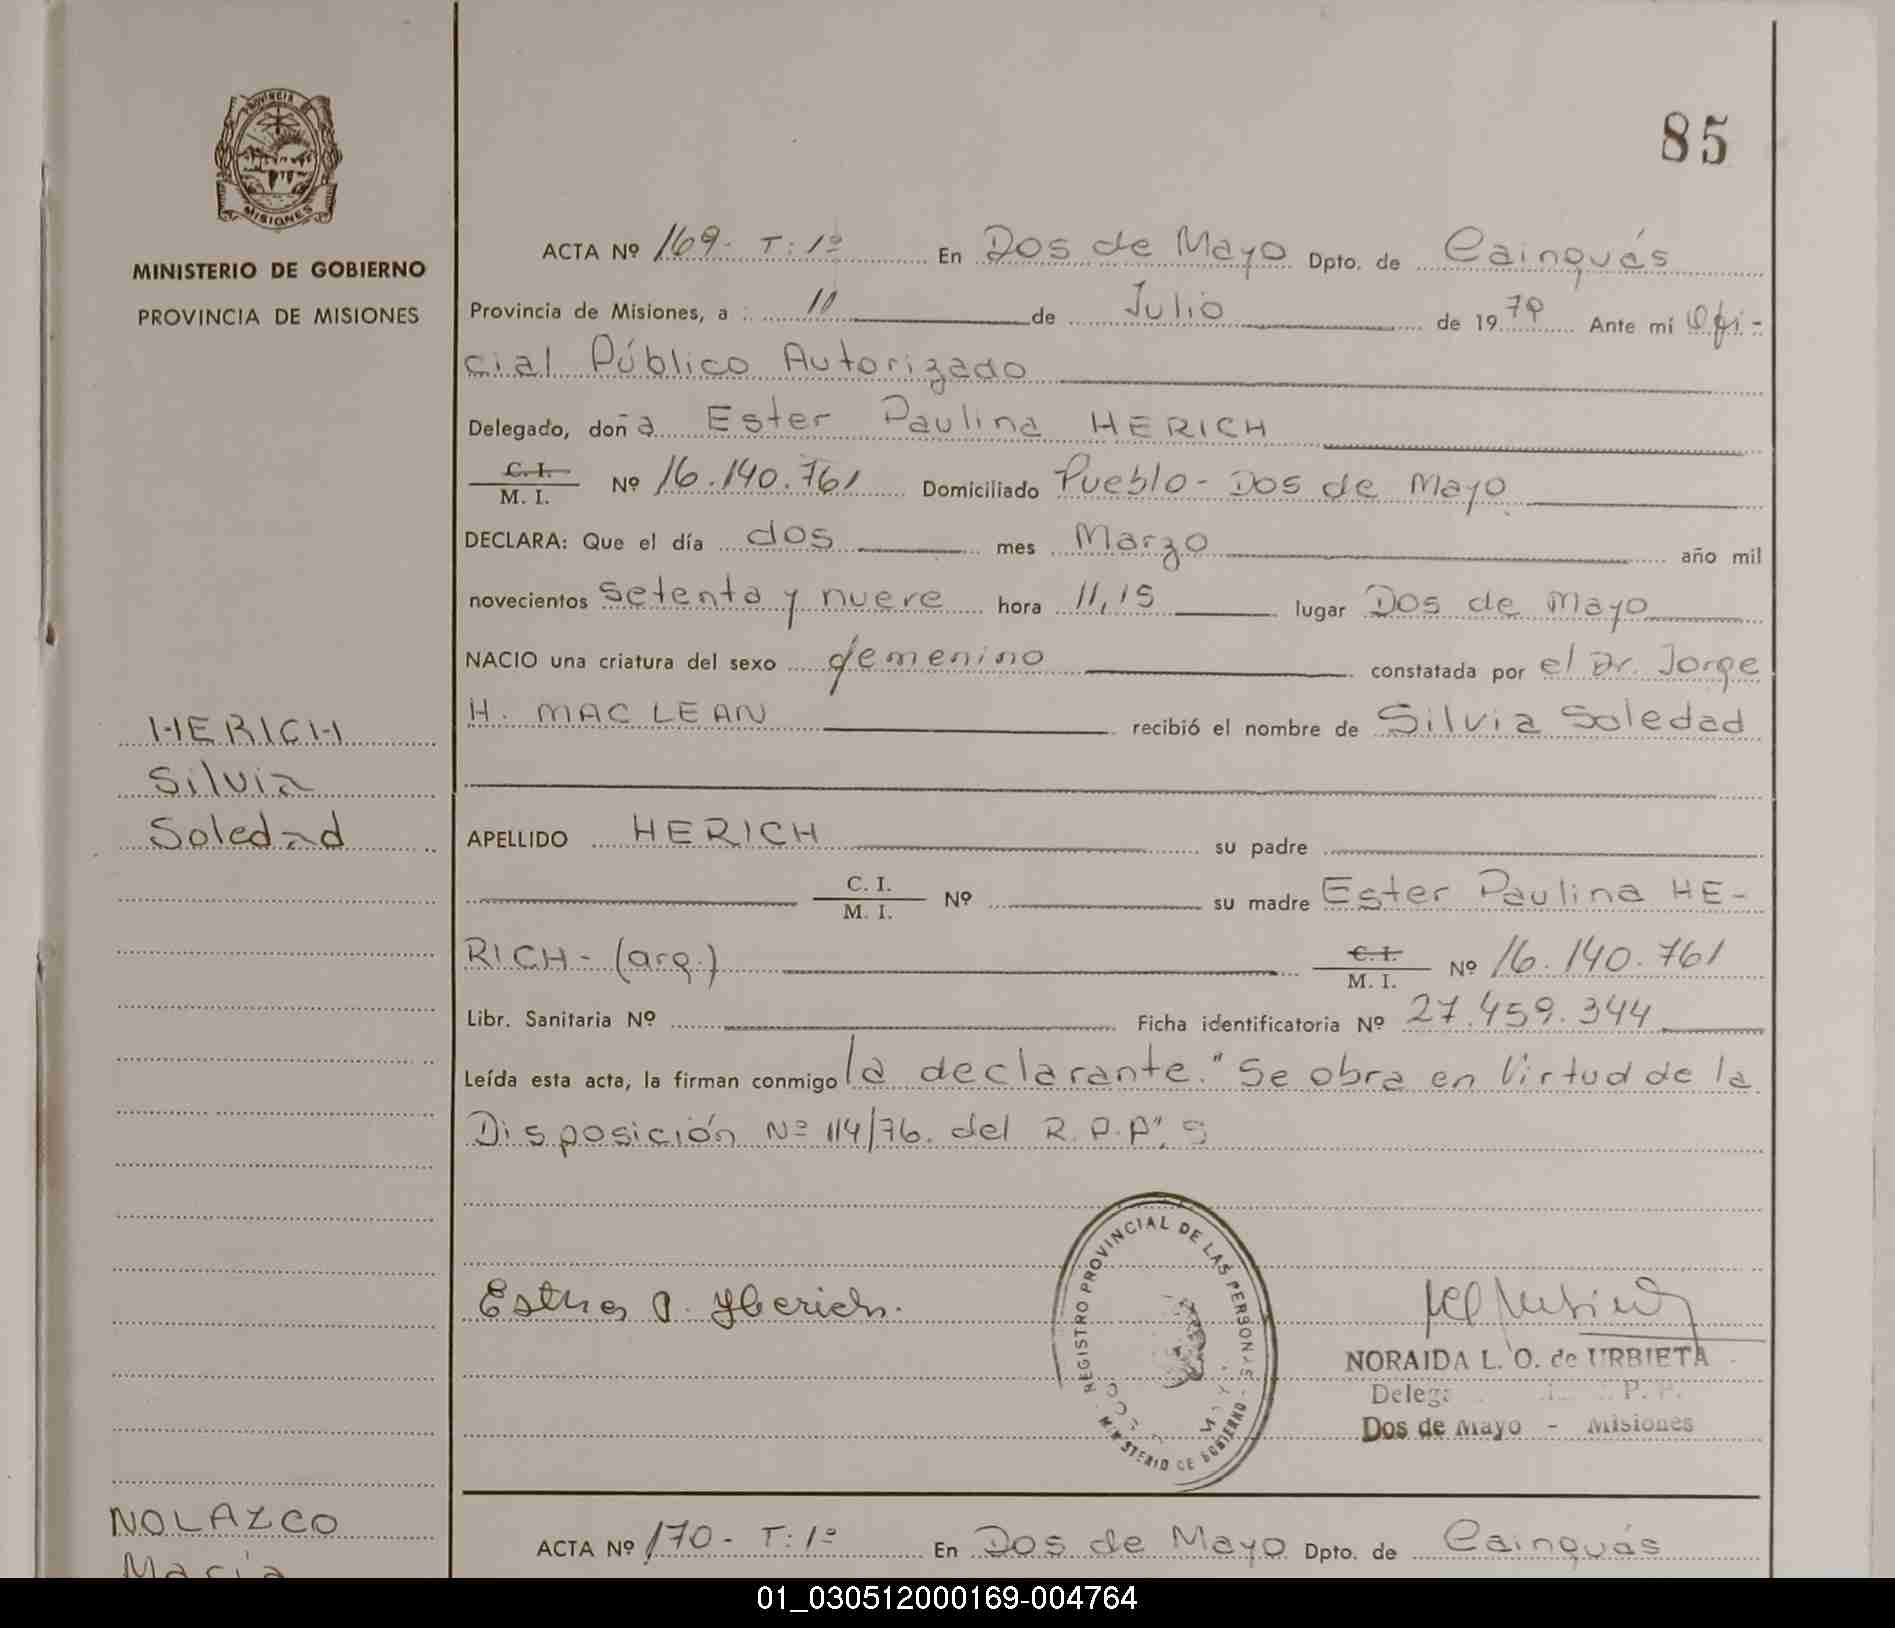 PROVINCIA
MISIONES
MINISTERIO DE GOBIERNO
PROVINCIA DE MISIONES
85
ACTA Nº 169- T: 1º En Dos de Mayo Dpto. de Cainguás
Provincia de Misiones, a 10 de Julio de 1979 Ante mí Ofi-
cial Público Autorizado
Delegado, doña Ester Paulina HERICH
C. I.
M. I. Nº 16.140.761 Domiciliado Pueblo - Dos de Mayo
DECLARA: Que el día dos mes Marzo año mil
novecientos setenta y nueve hora 11,15 lugar Dos de Mayo
NACIO una criatura del sexo femenino constatada por el Dr. Jorge
H. MAC LEAN recibió el nombre de Silvia Soledad
HERICH
Silvia
Soledad
APELLIDO HERICH su padre
C. I.
M. I. Nº su madre Ester Paulina HE-
RICH - (arg.) C. I.
M. I. Nº 16.140.761
Libr. Sanitaria Nº Ficha identificatoria Nº 27.459.344
Leída esta acta, la firman conmigo la declarante. "Se obra en Virtud de la
Disposición Nº 114/76. del R.P.P".
Esther P. Herich.
REGISTRO PROVINCIAL DE LAS PERSONAS
MINISTERIO DE GOBIERNO
NORAIDA L. O. de URBIETA
P. P.
Dos de Mayo - Misiones
NOLAZCO
María
ACTA Nº 170- T: 1º En Dos de Mayo Dpto. de Cainguás
01_030512000169-004764